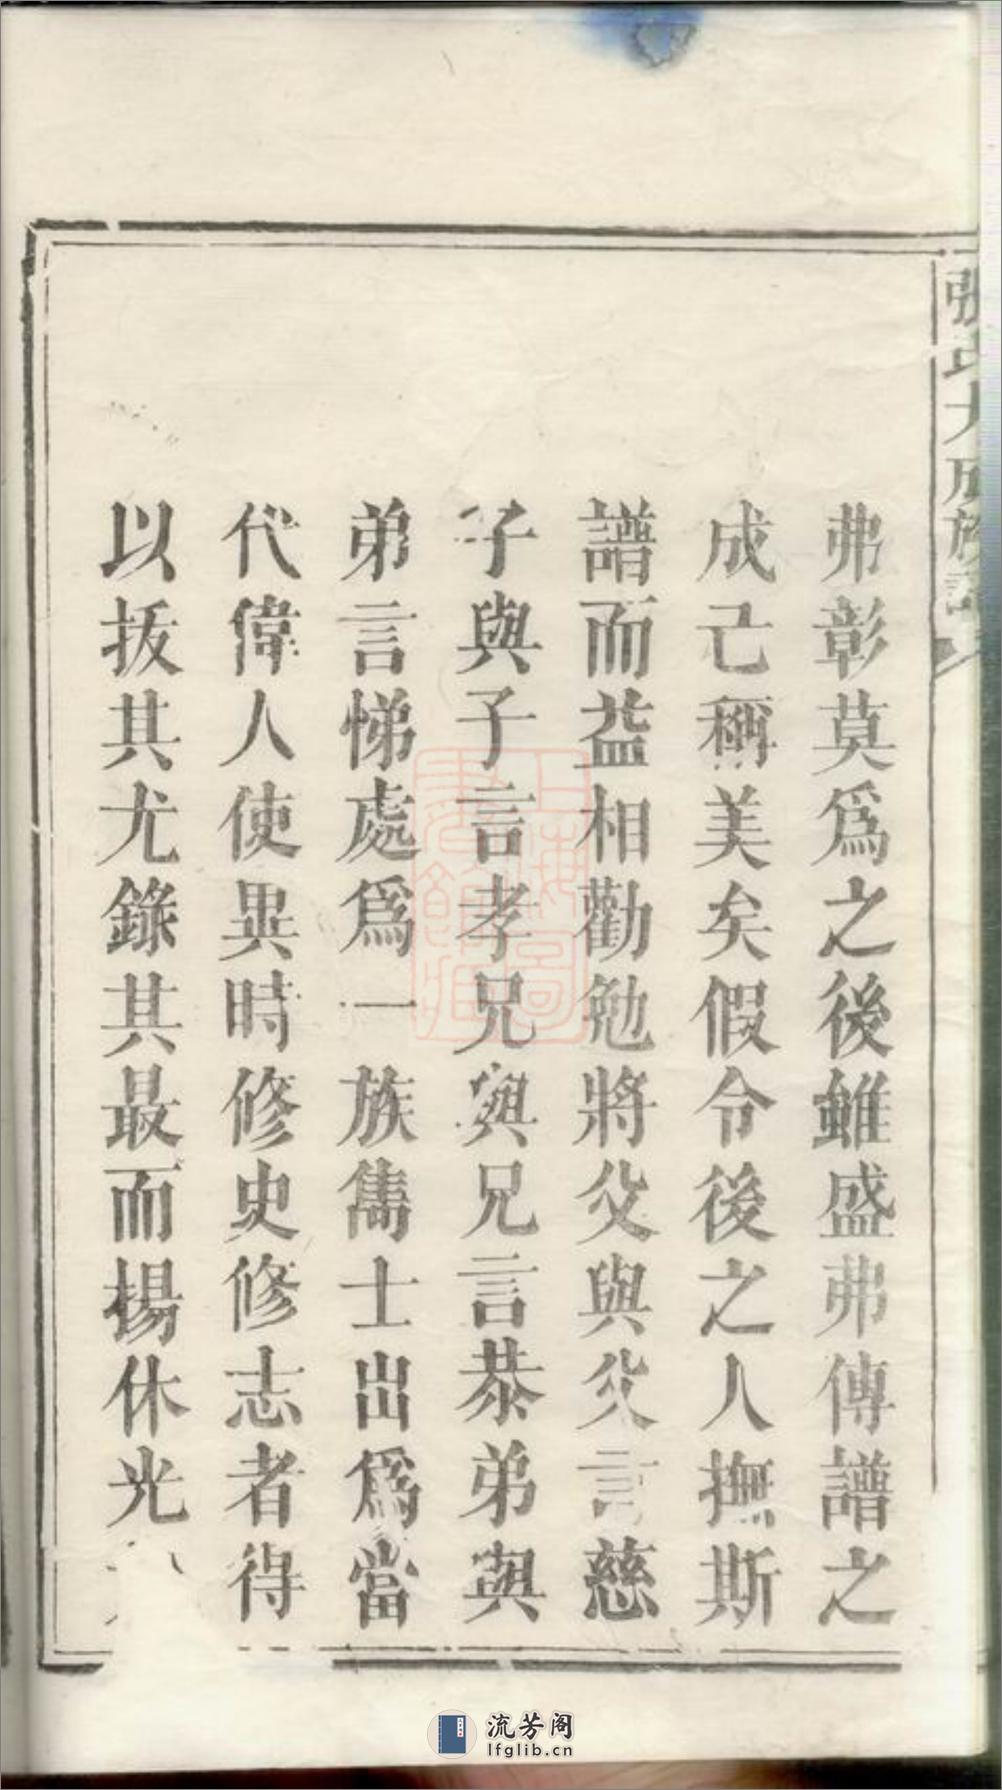 張氏大成族譜
弗彰莫爲之後雖盛弗傳譜之
成已稱美矣假令後之人撫斯
譜而益相勸勉將父與父言慈
子與子言孝兄與兄言恭弟與
弟言悌處爲一族雋士出爲當
代偉人使異時修史修志者得
以拔其尤錄其最而揚休光
上海圖書館藏
流芳阁
lfglib.cn